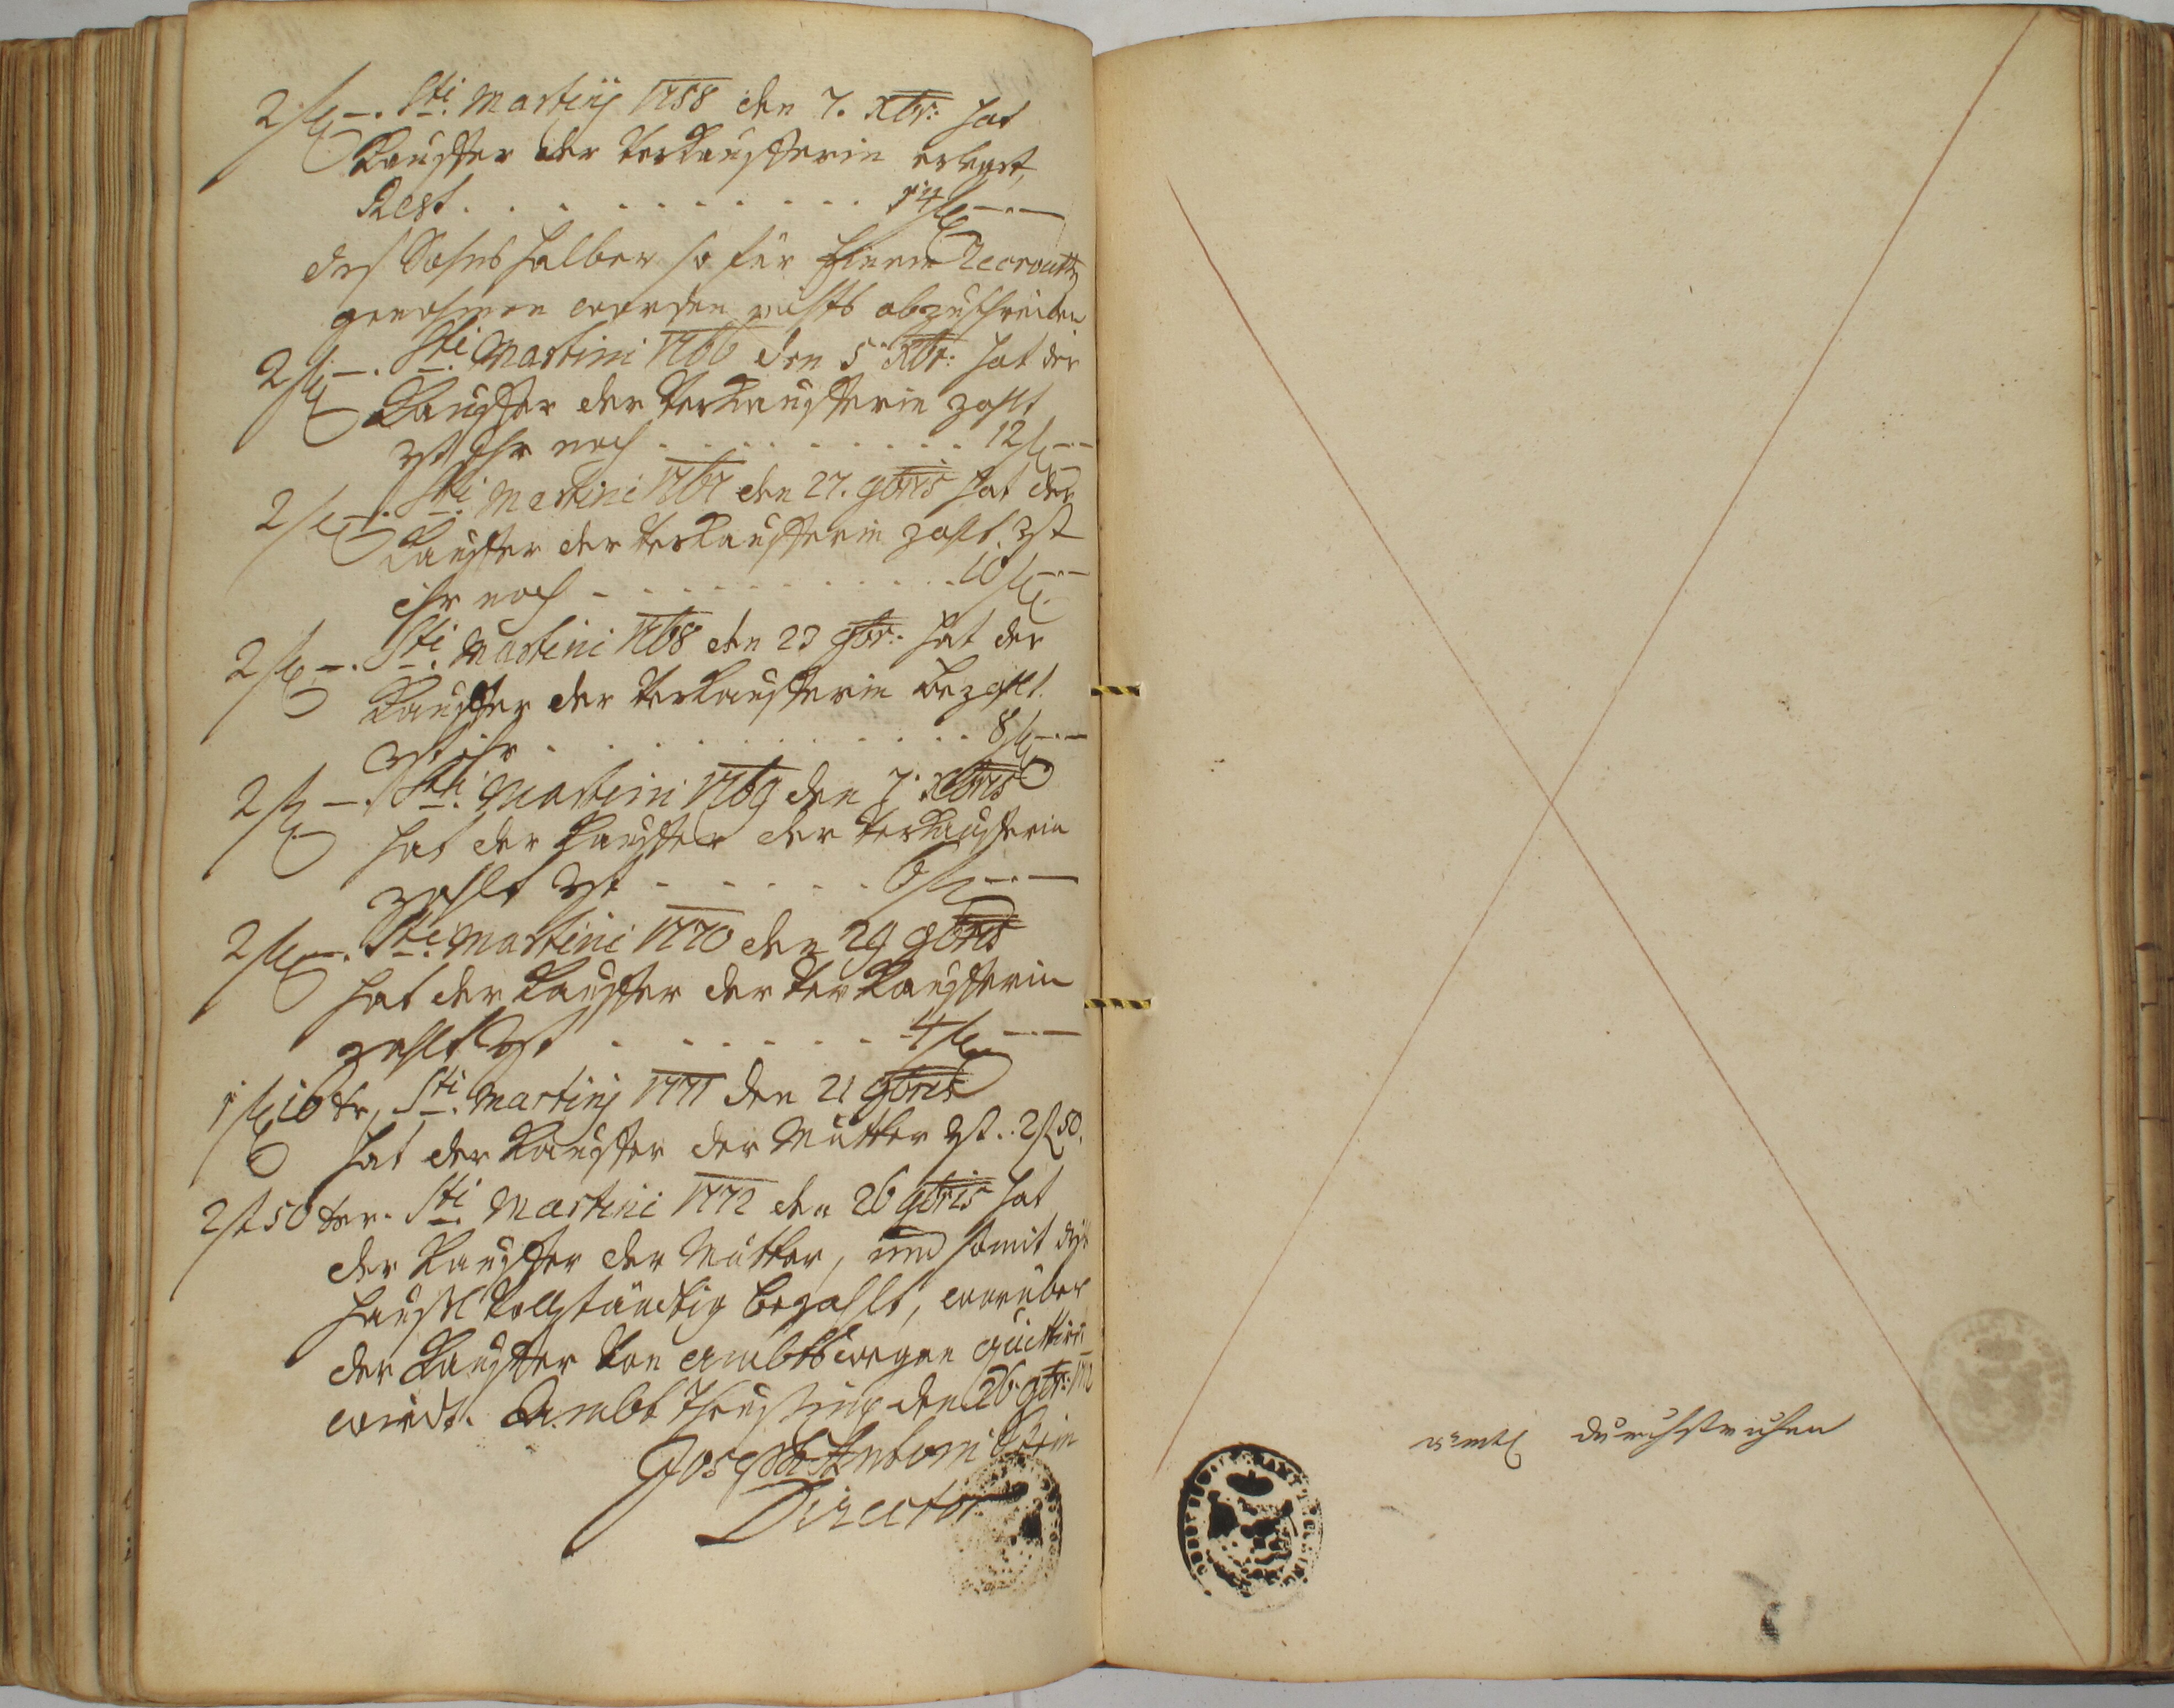 2 f — . Sti. Martiy 1758 den 7. Xbr: hat
Kauffer der Verkaufferin erlegt,
Rest . . . . . . . . . . . 14 f — . —
des Sohns halber so für Recroutt
genohmen worden nichts abzuschreiben
2 f — . Sti. Martini 1766 den 5 Xbr: hat der
Kauffer der Verkaufferin zahlt
ist ihr noch . . . . . . . . . 12 f — . —
2 f — . Sti. Martini 1767 den 27. 9bris hat der
Kauffer der Verkaufferin zahlt. ist
ihr noch . . . . . . . . . . 10 f — . —
2 f — . Sti. Martini 1768 den 23 9br: hat der
Kauffer der Verkaufferin bezahlt.
ist ihr . . . . . . . . . . 8 f — . —
2 f — . Sti. Martini 1769 den 7. Xbris
hat der Kauffer der Verkaufferin
zahlt ist . . . . . . 6 f — . —
2 f — . Sti. Martini 1770 den 29 9bris
hat der Kauffer der Verkaufferin
zahlt ist . . . . . . 4 f — . —
1 f 10 kr, Sti. Martiny 1771 den 21 9bris
hat der Kauffer der Mutter ist . . 2 f 50.
2 f 50 kr. Sti. Martini 1772 den 26 9bris hat
der Kauffer der Mutter, und somit
Vollständig bezahlt, worüber
der Kauffer von ambtswegen quittirt
wird. Ambt den 26. 9br: 772
Joseph Antoni
Director
durchstrichen